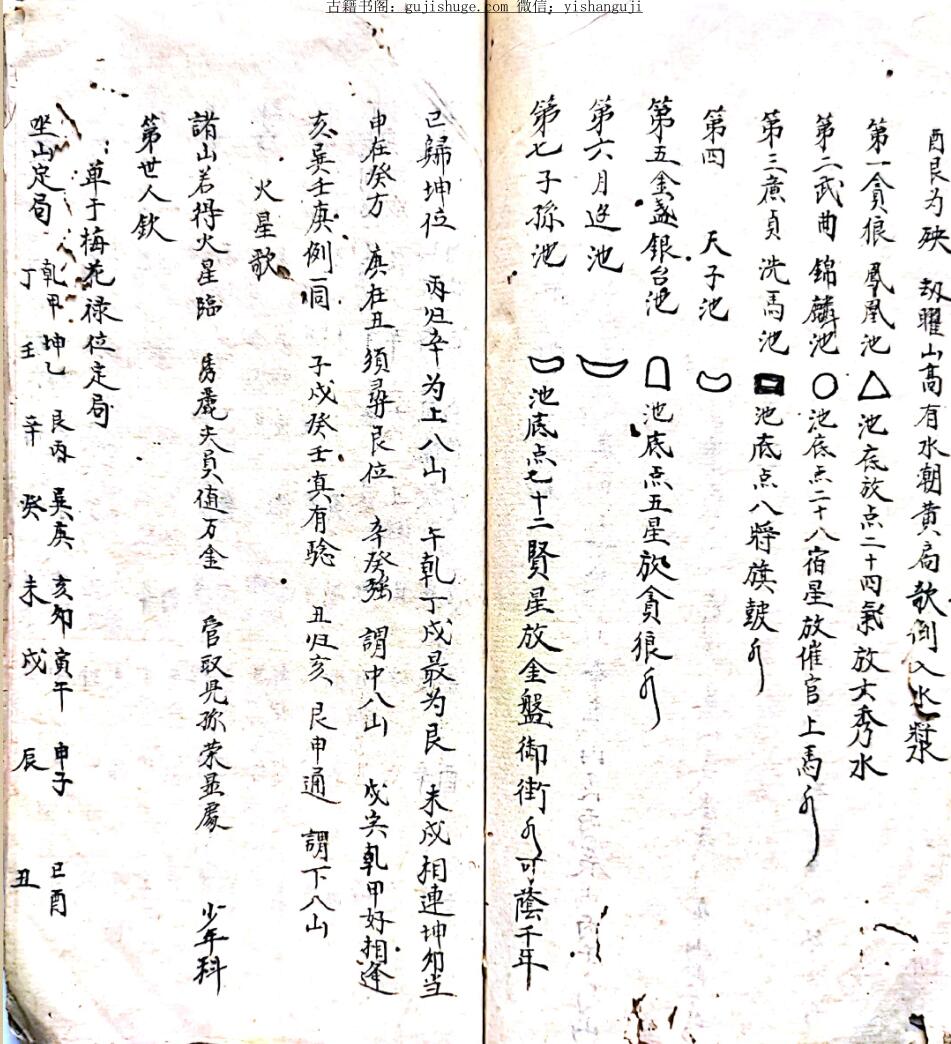 古籍书阁：gujishuge.com 微信：yishanguji
酉艮为殃 劫曜山高有水朝黄局歌倒入水
第一貪狼 鳳凰池 池底放点二十四氣放文秀水
第二武曲 錦麟池 池底点二十八宿星放催官上馬水
第三廉貞 洗馬池 池底点八將旗鼓水
第四 天子池
第五金盞銀台池 池底点五星放貪狼水
第六月 池
第七子孫池 池底点七十二賢星放金盤御街水可蔭千年
巳歸坤位 丙归辛为上八山 午乾丁戍最为艮 未戍相連坤夘当
申在癸方 庚在丑須尋艮位 辛癸強 謂中八山 戍亥乾甲好相逢
亥巽壬庚例一同 子戍癸壬真有驗 丑归亥 艮申通 謂下八山
火星歌
諸山若得火星臨 夫員值万金 管取児孫荣显處 少年科
第世人欽
草于梅花禄位定局
坐山定局 乾甲 坤乙 艮丙 巽庚 亥夘 寅午 申子 巳酉
丁 壬 辛 癸 未 戍 辰 丑